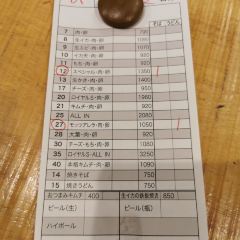 そば うどん
7 肉・卵 790
8 生イカ・肉・卵 920
9 生エビ・肉・卵
10 イカ天・肉・卵 920
11 もち・肉・卵 920
12 スペシャル・肉・卵 1350 1
16 生かき・肉・卵
17 チーズ・肉・卵 920
20 ロイヤルS・肉・卵
21 キムチ・肉・卵 920
25 ALL IN 2080
27 モッツアレラ・肉・卵 1050 1
28 大葉・肉・卵 920
30 チーズ・もち・肉・卵 1050
35 ロイヤルS・ALL IN 3250
40 本格キムチ・肉・卵 1050
14 焼きそば 750
15 焼きうどん 750
おつまみキムチ 400 生イカの鉄板焼き 850
ビール(生) ビール(瓶)
ハイボール